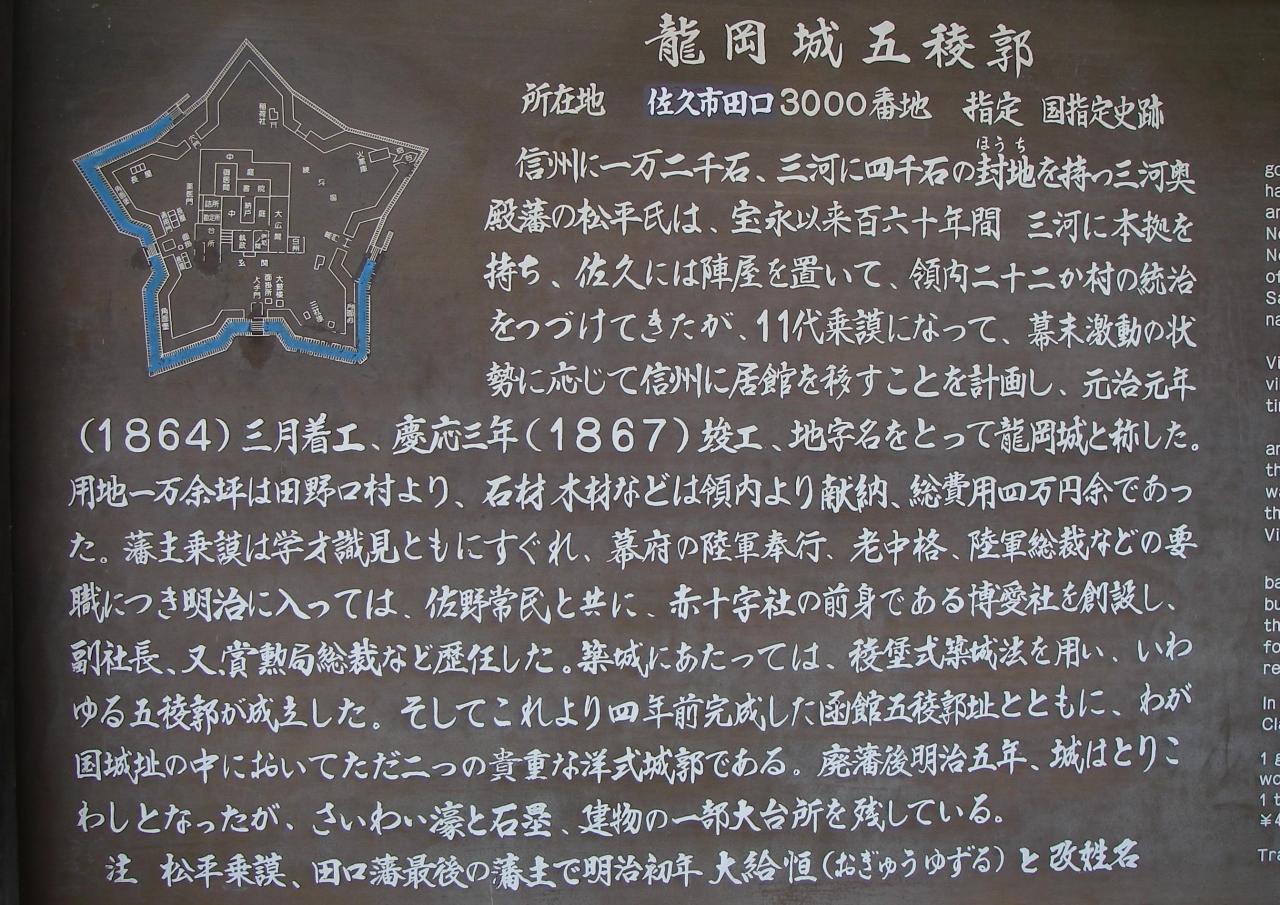 龍岡城五稜郭
所在地 佐久市田口3000番地 指定 国指定史跡
ほうち
信州に一万二千石、三河に四千石の封地を持つ三河奥
殿藩の松平氏は、宝永以来百六十年間 三河に本拠を
持ち、佐久には陣屋を置いて、領内二十二か村の統治
をつづけてきたが、11代乗謨になって、幕末激動の状
勢に応じて信州に居館を移すことを計画し、元治元年
(1864)三月着工、慶応三年(1867)竣工、地字名をとって龍岡城と称した。
用地一万余坪は田野口村より、石材木材などは領内より献納、総費用四万円余であっ
た。藩主乗謨は学才識見ともにすぐれ、幕府の陸軍奉行、老中格、陸軍総裁などの要
職につき明治に入っては、佐野常民と共に、赤十字社の前身である博愛社を創設し、
副社長、又賞勲局総裁など歴任した。築城にあたっては、稜堡式築城法を用い、いわ
ゆる五稜郭が成立した。そしてこれより四年前完成した函館五稜郭址とともに、わが
国城址の中においてただ二つの貴重な洋式城郭である。廃藩後明治五年、城はとりこ
わしとなったが、さいわい濠と石塁、建物の一部大台所を残している。
注 松平乗謨、田口藩最後の藩主で明治初年 大給恒(おぎゅうゆずる)と改姓名
稲荷社
火薬庫
中
庭
御居間
書院
詰所
勘定所
中
納戸
庭
大広間
台所
玄関
薬医門
長屋
大手門
太鼓楼